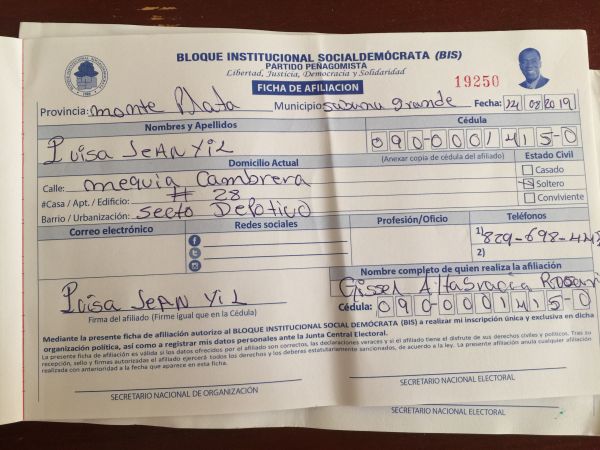 BLOQUE INSTITUCIONAL SOCIALDEMÓCRATA (BIS)
PARTIDO PEÑAGOMISTA
Libertad, Justicia, Democracia y Solidaridad
FICHA DE AFILIACION
19250
Provincia: monte Plata Municipio: sabana grande Fecha: 24 08 2019
Nombres y Apellidos Cédula
Luisa JEAN YIL 090-0001415-0
Domicilio Actual (Anexar copia de cédula del afiliado) Estado Civil
Calle: mequia Cambrera Casado
#Casa / Apt. / Edificio: # 28 Soltero
Barrio / Urbanización: secto Depotivo Conviviente
Correo electrónico Redes sociales Profesión/Oficio Teléfonos
1) 829-698-
2)
Nombre completo de quien realiza la afiliación
Gissel Altagracia
Luisa JEAN YIL Cédula: 090-0001415-0
Firma del afiliado (Firme igual que en la Cédula)
Mediante la presente ficha de afiliación autorizo al BLOQUE INSTITUCIONAL SOCIAL DEMÓCRATA (BIS) a realizar mi inscripción única y exclusiva en dicha
organización política, así como a registrar mis datos personales ante la Junta Central Electoral.
La presente ficha de afiliación es válida si los datos ofrecidos por el afiliado son correctos, las declaraciones veraces y si el afiliado tiene el disfrute de sus derechos civiles y políticos. Tras su
recepción, sello y firmas autorizadas el afiliado ejercerá todos los derechos y los deberes estatutariamente sancionados, de acuerdo a la ley. La presente afiliación anula cualquier afiliación
realizada con anterioridad a la fecha que aparece en esta ficha.
SECRETARIO NACIONAL DE ORGANIZACIÓN SECRETARIO NACIONAL ELECTORAL
SECRETARIO NACIONAL ELECTORAL